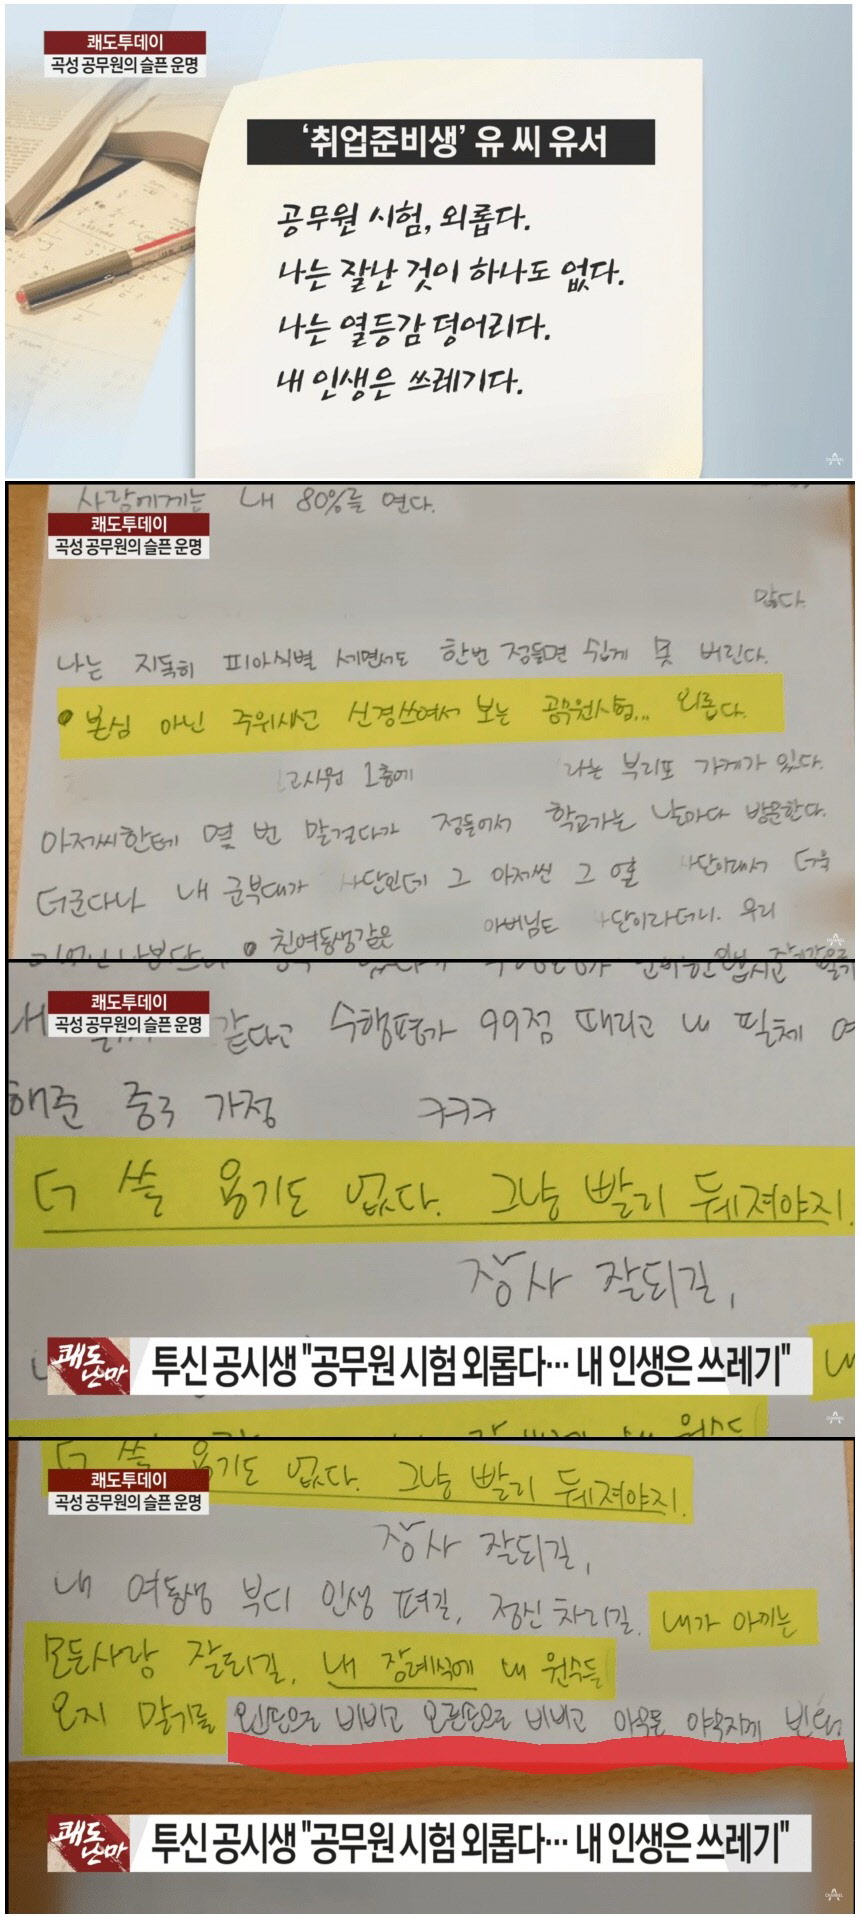 쾌도투데이
곡성 공무원의 슬픈 운명
'취업준비생' 유 씨 유서
공무원 시험, 외롭다.
나는 잘난 것이 하나도 없다.
나는 열등감 덩어리다.
내 인생은 쓰레기다.
사람에게는 내 80%를 연다.
쾌도투데이
곡성 공무원의 슬픈 운명
많다.
나는 지독히 피아식별 세면서도 한번 정들면 쉽게 못 버린다.
본심 아닌 주위시선 신경쓰여서 보는 공무원시험... 외롭다.
고시원 1층에 라는 부리또 가게가 있다.
아저씨한테 몇 번 말걸다가 정들어서 학교가는 날마다 방문한다.
더군다나 내 군부대가 사단인데 그 아저씬 그 옆 사단이래서 더욱
친여동생같은 아버님도 사단이라더니. 우리
쾌도투데이
곡성 공무원의 슬픈 운명
같다고 수행평가 99점 때리고 내 필체
해준 중국 가정 ㅋㅋㅋ
더 쓸 용기도 없다. 그냥 빨리 뒈져야지.
장사 잘되길,
쾌도난마
투신 공시생 "공무원 시험 외롭다… 내 인생은 쓰레기"
더 쓸 용기도 없다. 그냥 빨리 뒈져야지.
쾌도투데이
곡성 공무원의 슬픈 운명
장사 잘되길,
내 여동생 부디 인생 펴길, 정신 차리길. 내가 아끼는
모든사람 잘되길. 내 장례식에 내 원수들
오지 말기를 왼손으로 비비고 오른손으로 비비고 아무튼 야무지게 빈다
쾌도난마
투신 공시생 "공무원 시험 외롭다… 내 인생은 쓰레기"